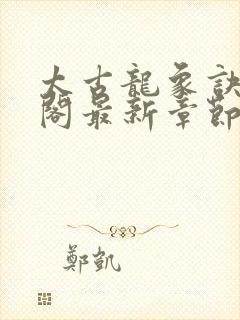 太古龍象訣
閣最新章節
鄭凱